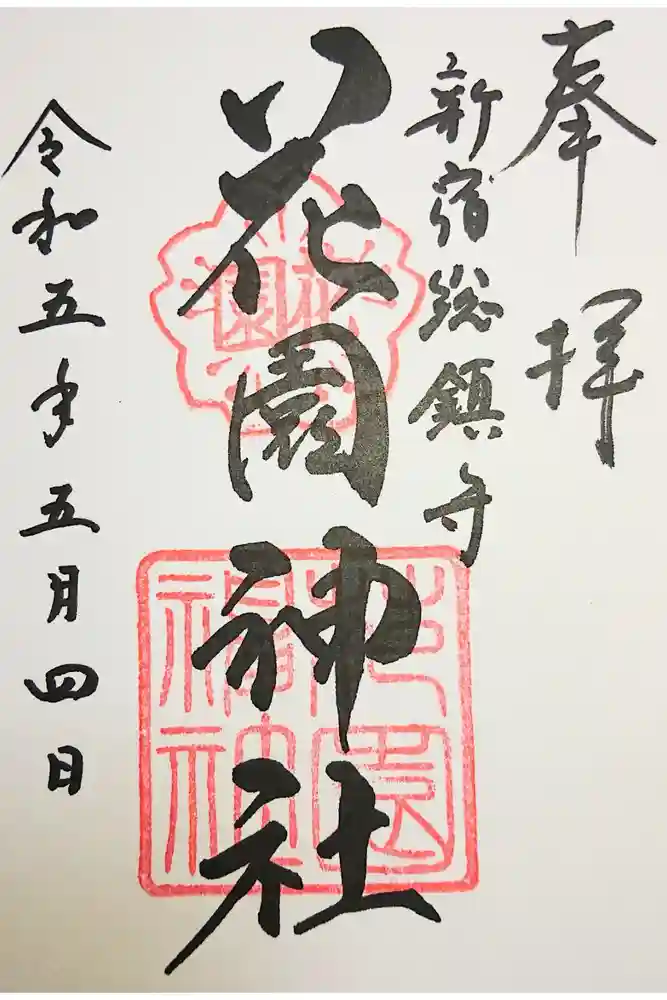 奉拝
新宿総鎮守
花園神社
令和五年五月四日
花園